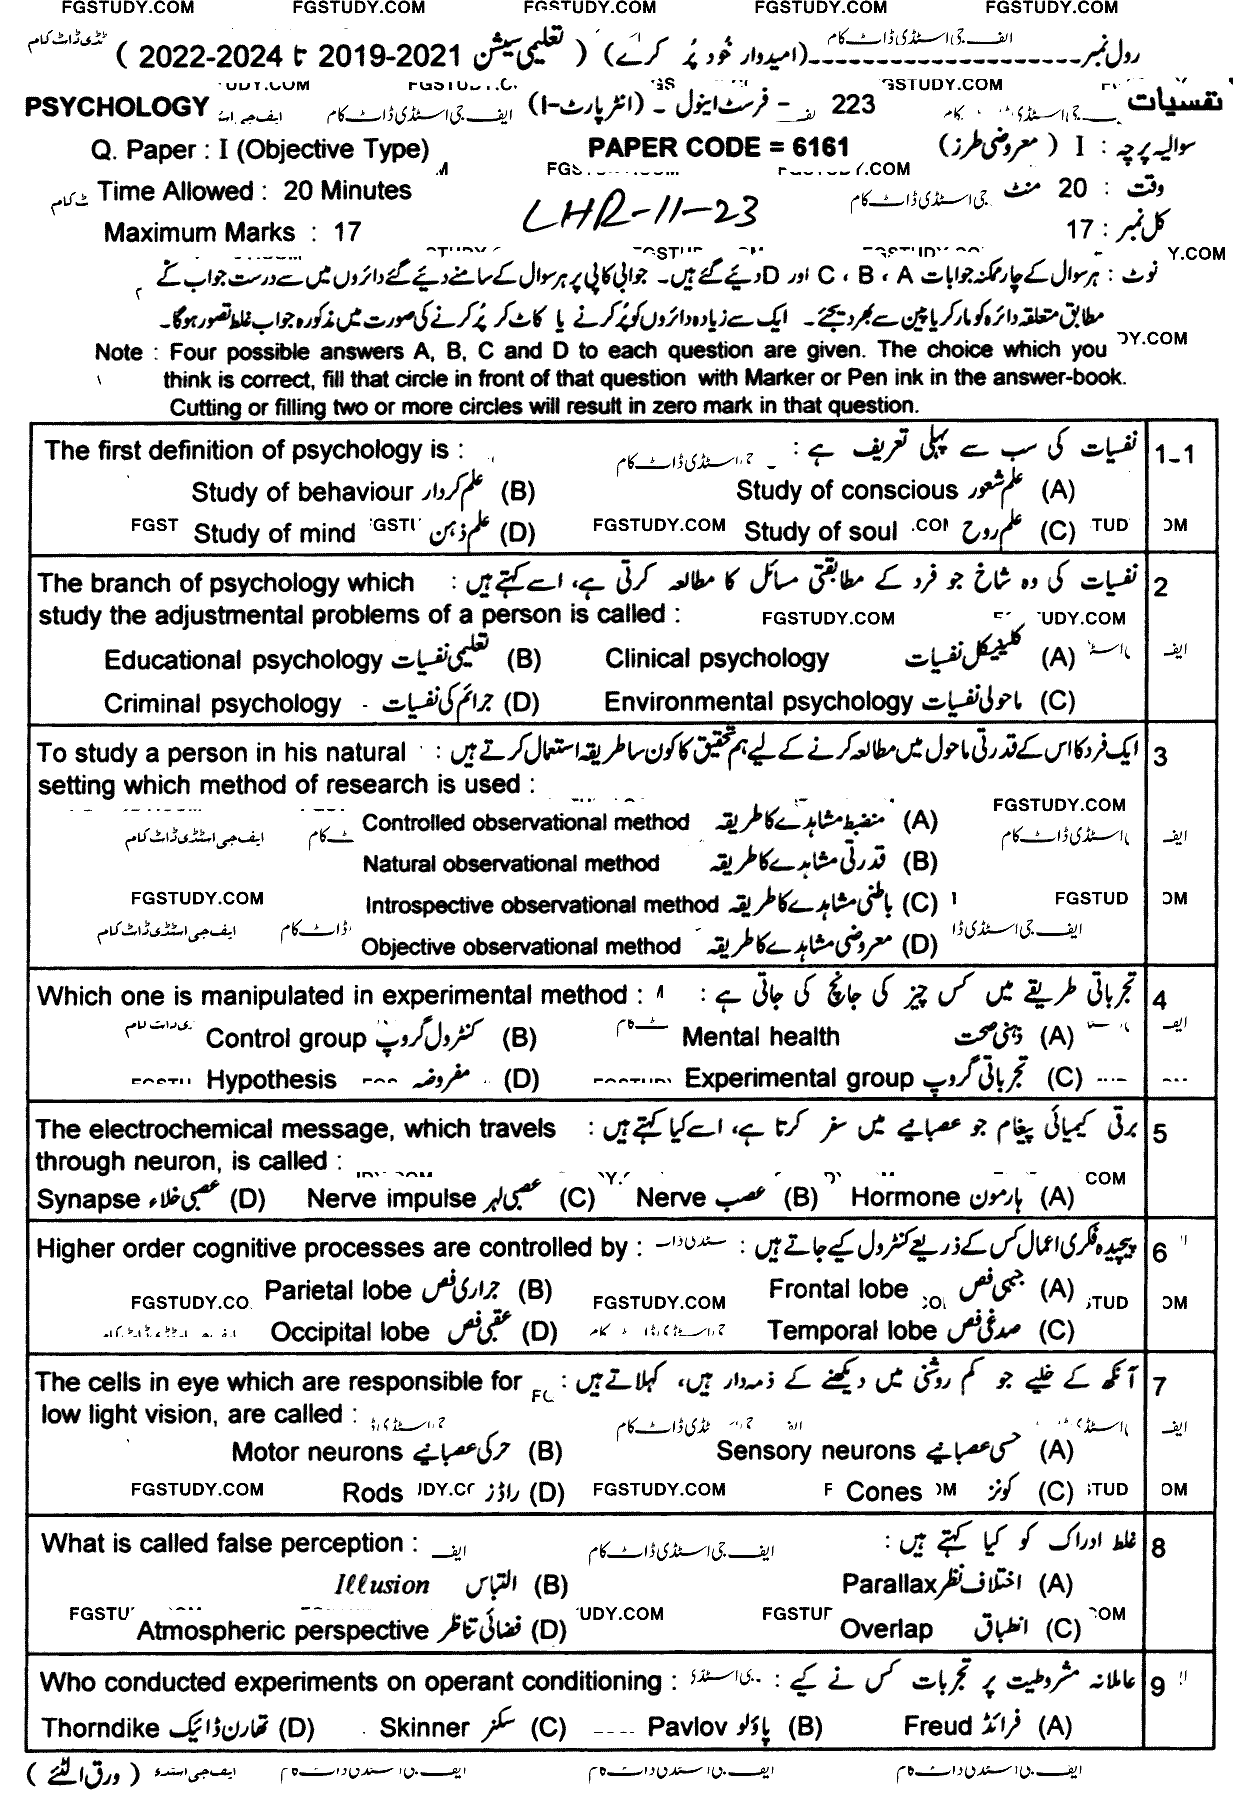 FGSTUDY.COM FGSTUDY.COM FGSTUDY.COM FGSTUDY.COM FGSTUDY.COM
رول نمبر (امیدوار خود پُر کرے) ( تعلیمی سیشن 2021-2019 تا 2024-2022 )
PSYCHOLOGY 223 - فرسٹ اینول - (انٹر پارٹ-I) نفسیات
Q. Paper : I (Objective Type) PAPER CODE = 6161 سوالیہ پرچہ : I ( معروضی طرز)
Time Allowed : 20 Minutes وقت : 20 منٹ
Maximum Marks : 17 LHR-11-23 کل نمبر : 17
نوٹ : ہر سوال کے چار ممکنہ جوابات A ، B ، C اور D دیئے گئے ہیں۔ جوابی کاپی پر ہر سوال کے سامنے دیئے گئے دائروں میں سے درست جواب کے
مطابق متعلقہ دائرہ کو مارکر یا پین سے بھر دیجئے۔ ایک سے زیادہ دائروں کو پُر کرنے یا کاٹ کر پُر کرنے کی صورت میں مذکورہ جواب غلط تصور ہوگا۔
Note : Four possible answers A, B, C and D to each question are given. The choice which you
think is correct, fill that circle in front of that question with Marker or Pen ink in the answer-book.
Cutting or filling two or more circles will result in zero mark in that question.
The first definition of psychology is : نفسیات کی سب سے پہلی تعریف ہے : 1-1
Study of behaviour علم کردار (B) Study of conscious علم شعور (A)
Study of mind علم ذہن (D) Study of soul علم روح (C)
The branch of psychology which نفسیات کی وہ شاخ جو فرد کے مطابقتی مسائل کا مطالعہ کرتی ہے، اسے کہتے ہیں : 2
study the adjustmental problems of a person is called :
Educational psychology تعلیمی نفسیات (B) Clinical psychology کلینیکل نفسیات (A)
Criminal psychology جرائم کی نفسیات (D) Environmental psychology ماحولی نفسیات (C)
To study a person in his natural ایک فرد کا اس کے قدرتی ماحول میں مطالعہ کرنے کے لیے ہم تحقیق کا کون سا طریقہ استعمال کرتے ہیں : 3
setting which method of research is used :
Controlled observational method منضبط مشاہدے کا طریقہ (A)
Natural observational method قدرتی مشاہدے کا طریقہ (B)
Introspective observational method باطنی مشاہدے کا طریقہ (C)
Objective observational method معروضی مشاہدے کا طریقہ (D)
Which one is manipulated in experimental method : تجرباتی طریقے میں کس چیز کی جانچ کی جاتی ہے : 4
Control group کنٹرول گروپ (B) Mental health ذہنی صحت (A)
Hypothesis مفروضہ (D) Experimental group تجرباتی گروپ (C)
The electrochemical message, which travels برقی کیمیائی پیغام جو عصبانیے میں سفر کرتا ہے، اسے کیا کہتے ہیں : 5
through neuron, is called :
Synapse عصبی خلاء (D) Nerve impulse عصبی لہر (C) Nerve عصب (B) Hormone ہارمون (A)
Higher order cognitive processes are controlled by : پیچیدہ فکری اعمال کس کے ذریعے کنٹرول کیے جاتے ہیں : 6
Parietal lobe جراری فص (B) Frontal lobe جبہی فص (A)
Occipital lobe عقبی فص (D) Temporal lobe صدغی فص (C)
The cells in eye which are responsible for آنکھ کے خلیے جو کم روشنی میں دیکھنے کے ذمہ دار ہیں، کہلاتے ہیں : 7
low light vision, are called :
Motor neurons حرکی عصبانیے (B) Sensory neurons حسی عصبانیے (A)
Rods راڈز (D) Cones کونز (C)
What is called false perception : غلط ادراک کو کیا کہتے ہیں : 8
Illusion التباس (B) Parallax اختلاف نظر (A)
Atmospheric perspective فضائی تناظر (D) Overlap انطباق (C)
Who conducted experiments on operant conditioning : عاملانہ مشروطیت پر تجربات کس نے کیے : 9
Thorndike تھارن ڈائیک (D) Skinner سکنر (C) Pavlov پاؤلو (B) Freud فرائڈ (A)
( ورق الٹئے )